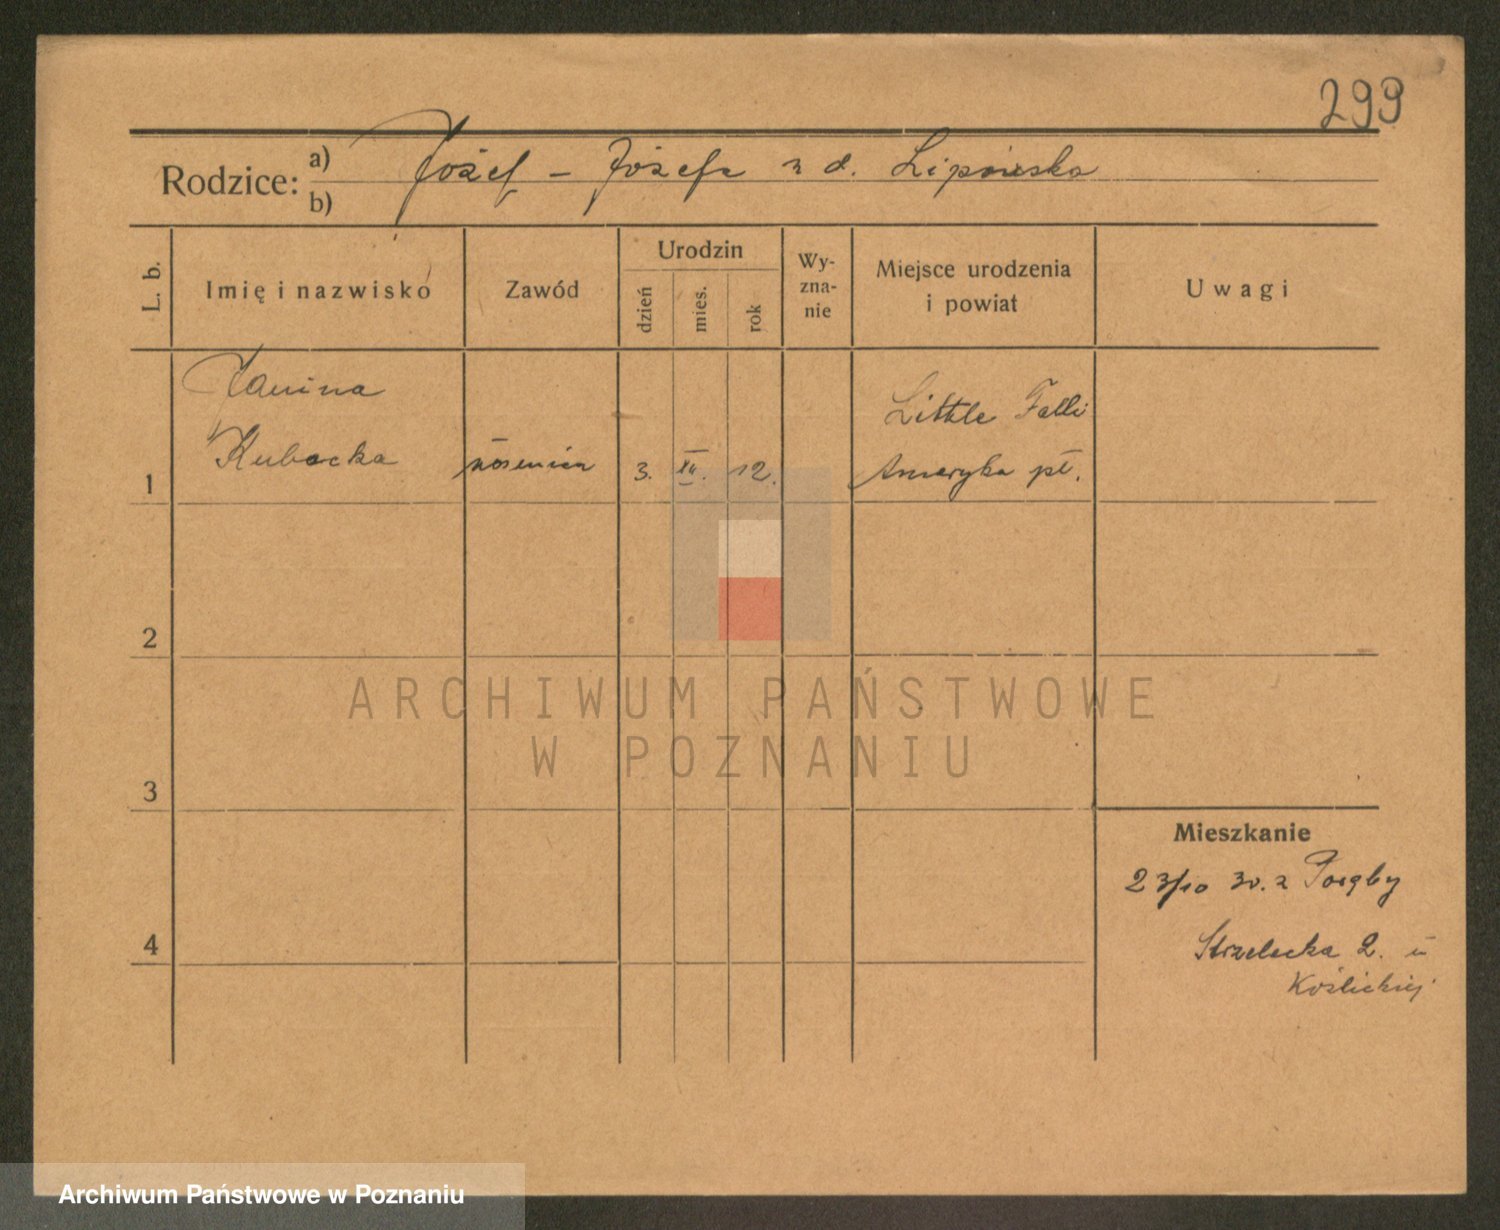 299
Rodzice: a) Józef – Józefa z d. Lipińska
b)
L. b.
Imię i nazwisko
Zawód
Urodzin
dzień
mies.
rok
Wy-
zna-
nie
Miejsce urodzenia
i powiat
Uwagi
Janina
Kubacka
1
3. XII. 12.
Little Falls
Ameryka pł.
2
3
4
Mieszkanie
23/10 30. z Poręby
Strzelecka 2. u
Koślickiej
ARCHIWUM PAŃSTWOWE
W POZNANIU
Archiwum Państwowe w Poznaniu